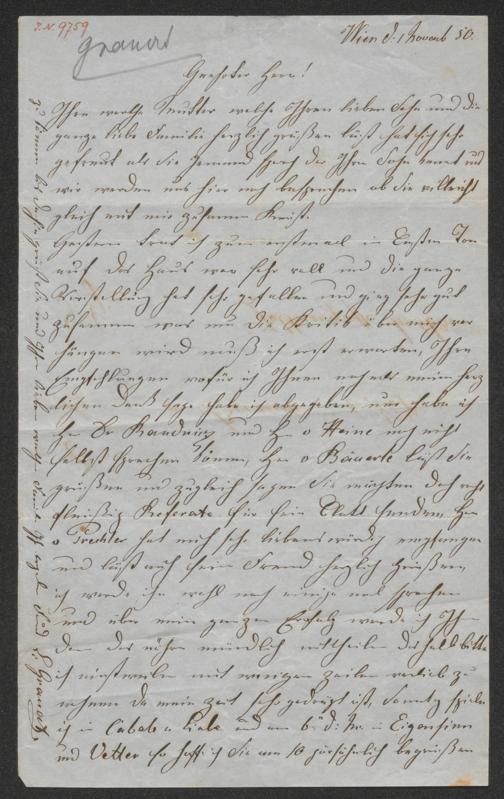 J. N. 9759
Grandt
Wien d. 1 Novemb 50.
Geehrter Herr!
Ihre werthe Mutter welche Ihren lieben Sohn und die
ganze liebe Familie herzlich grüßen läßt hat sich sehr
gefreut als Sie Jemand sprach der Ihren Sohn kennt und
wir werden uns hier noch besprechen ob Sie vielleicht
gleich mit mir zusammen
Gestern trat ich zum erstenmal in Ersten Ton
auf das Haus war sehr voll und die ganze
Vorstellung hat sehr gefallen und ging sehr gut
zusammen was nun die Kritik über mich ver
hängen wird muß ich erst erwarten, Ihre
Empfehlungen wofür ich Ihnen nochmals meinen herz
lichen Dank sage habe ich abgegeben, nur habe ich
H Dr und H v Heine noch nicht
selbst sprechen können, Her v Bäuerle läßt Sie
grüßen und zugleich sagen Sie möchten doch recht
fleißig Referate für sein Blatt senden, Her
v hat mich sehr liebenswürdig empfangen
und läßt auch seinen Freund herzlich grüßen,
ich werde ihn wohl noch einige mal sprechen
und über meinen ganzen Erfolg werde ich Ih
nen das nähere mündlich mittheilen deshalb bitte
ich einstweilen mit wenigen Zeilen vorlieb zu
nehmen da meine Zeit sehr gedrängt ist, Sonntag spiele
ich in Cabale u Liebe und am in Eigensinn
und Vetter so hoffe ich Sie am 10 persönlich begrüßen
zu können bis dahin grüßt Sie und Ihre liebe